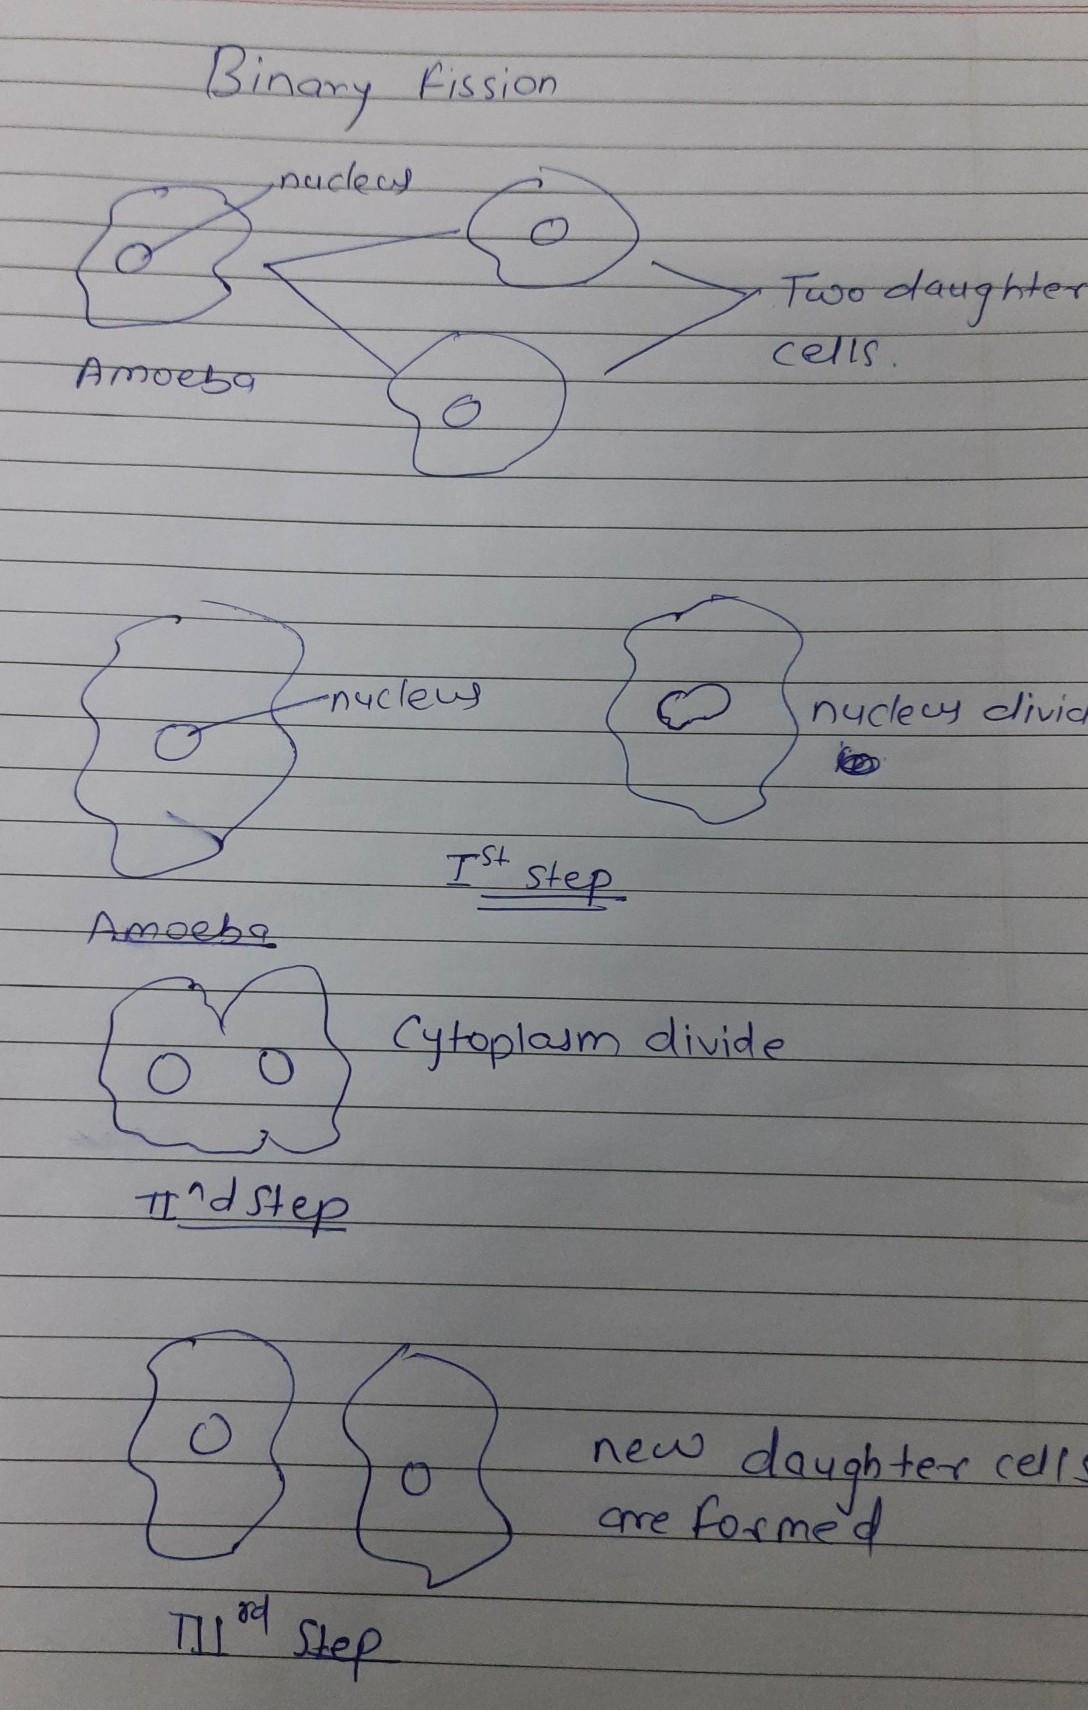 Binary Fission
nucleus
Two daughter
cells.
Amoeba
nucleus
nucleus divid
Ist step
Amoeba
Cytoplasm divide
IInd step
new daughter cells
are formed
IIIrd step